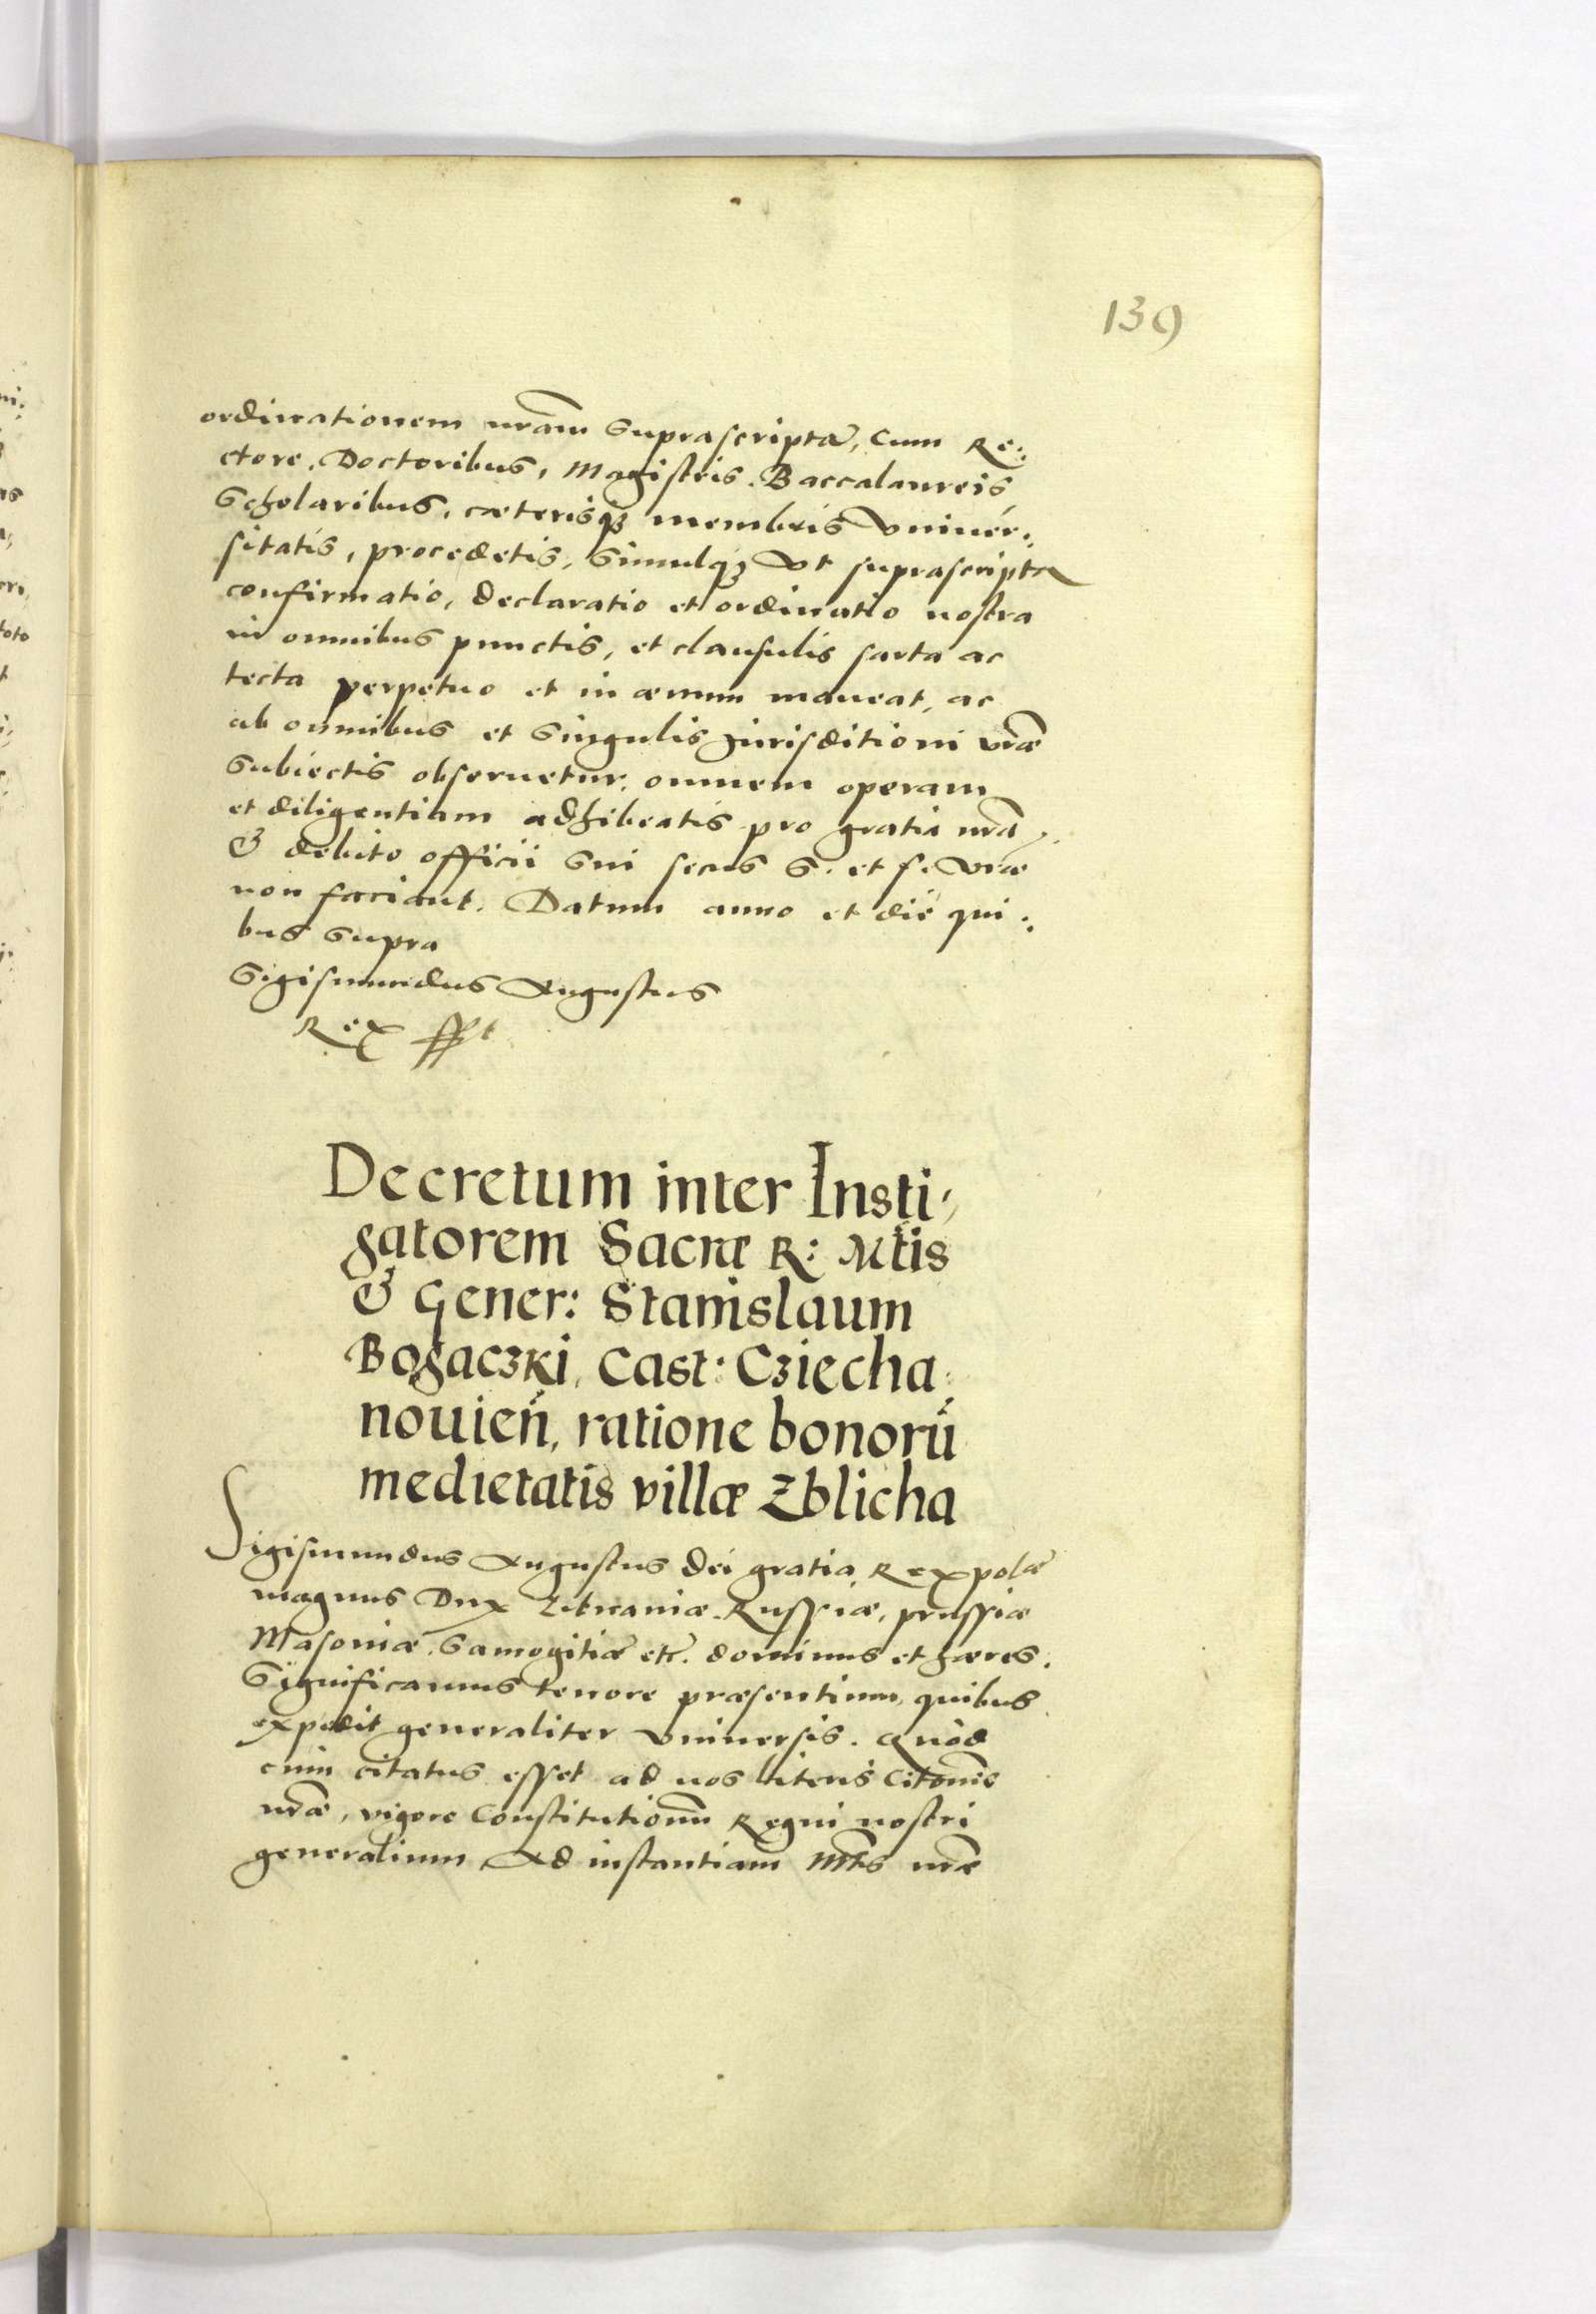 139
ordinationem nr̃am supra scriptã, Cum Re:
ctore, Doctoribus, Magistris, Baccalaureis
Scholaribus, cæterisq; membris Vniuer:
sitatis, procedetis, Simulq; Vt suprascripta
confirmatio, declaratio et ordinatio nostra
in omnibus punctis, et clausulis sarta ac
tecta perpetuo et in æuum maneat, ac
ab omnibus et Singulis Jurisditioni vr̃æ
Subiectis obseruetur, omnem operam
et diligentiam adhibeatis pro gratia nr̃a,
& debito officii Sui secus S. et f. Vræ
non faciant. Datum anno et die qui:
bus Supra
Sigismundus Augustus
Rex sst
Decretum inter Insti,
gatorem Sacræ R: Mtis
& Gener: Stanislaum
Bogaczki, Cast: Cziecha:
nouieñ, ratione bonorũ
medietatis villæ Zblicha
Sigismundus Augustus Dei gratia Rex polæ
magnus Dux Lituaniæ Russiæ, prussiæ
Masoniæ, Samogitiæ etc. dominus et hæres.
Significamus tenore præsentium, quibus
expedit generaliter Vniuersis. Quod
cum citatus esset ad nos literis Citoñis
nr̃æ, vigore Constitutionũ Regni nostri
generalium, Ad instantiam Mtis nr̃æ